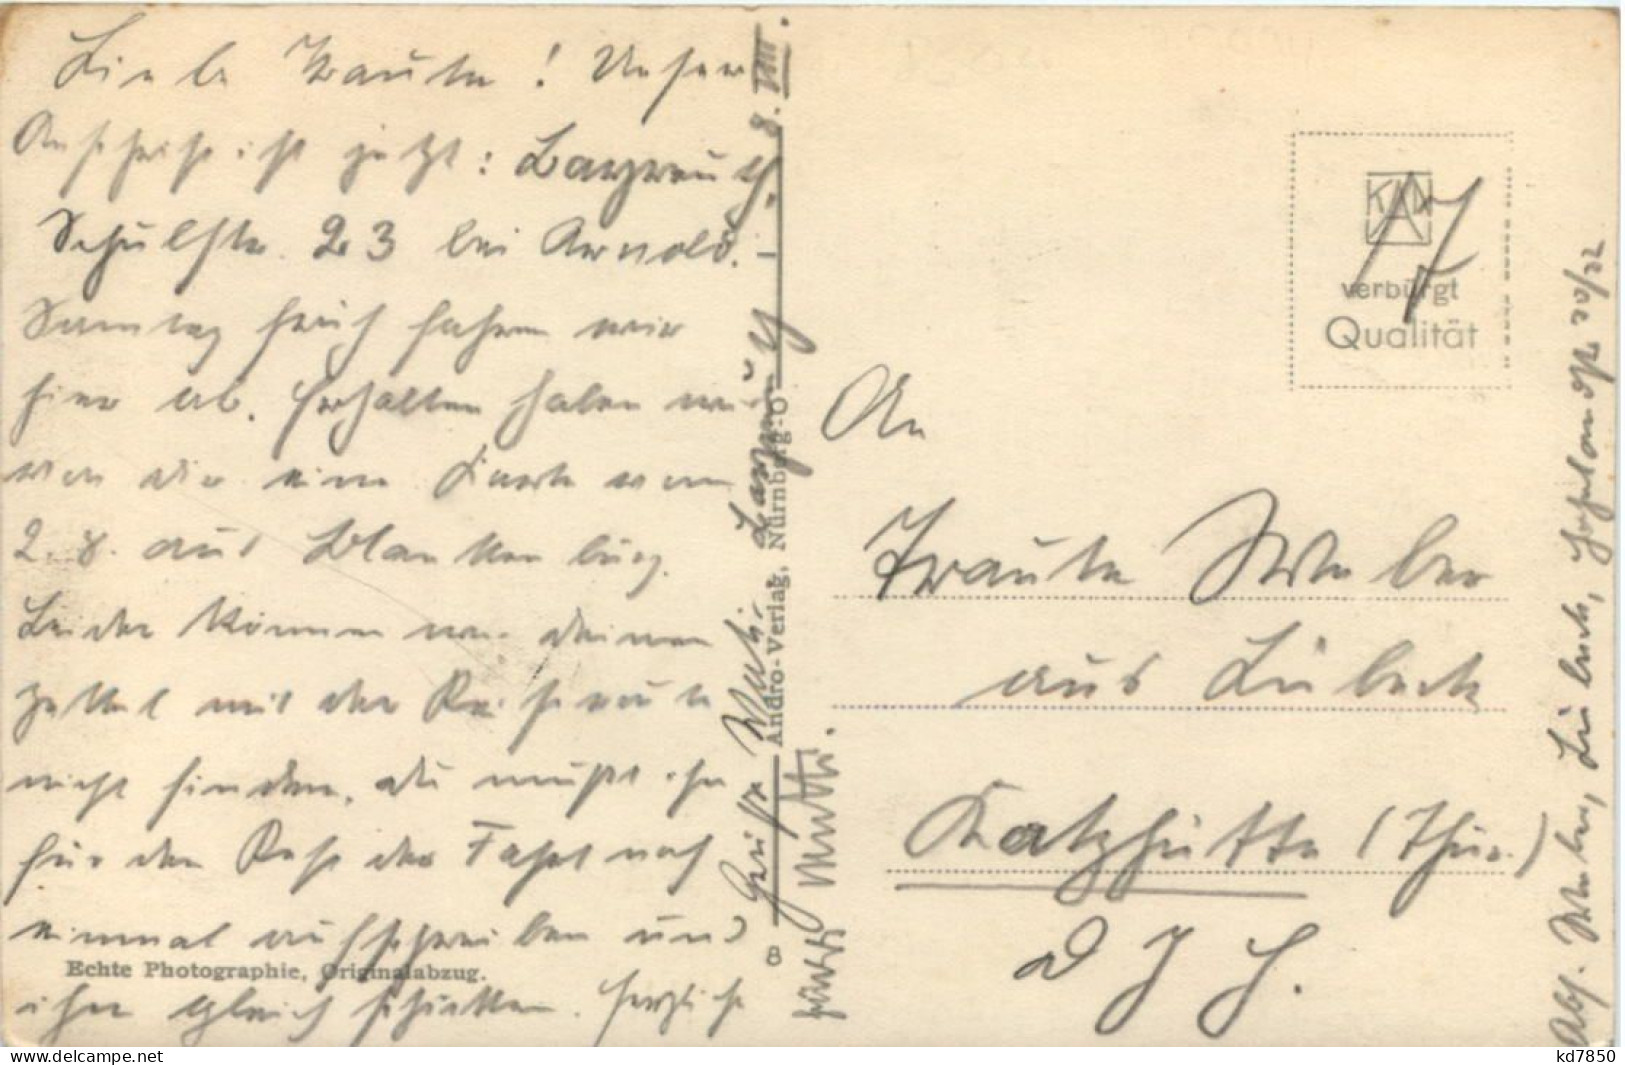 Liebe Traute! Unser
Anschrift ist jetzt: Bayreuth,
Schulstr. 23 bei Arnold. –
Samstag früh fahren wir
hier ab. Erhalten haben wir
von dir eine Karte vom
2. 8. aus Blankenburg.
Leider können wir deinen
Zettel mit der Reiseroute
nicht finden, du mußt ihn
für den Rest der Fahrt noch
einmal aufschreiben und
ihn gleich schicken. Herzliche
Grüße Vati.
Mutti.
Bayreuth 8. VIII.
Echte Photographie, Originalabzug.
Andro-Verlag, Nürnberg-O
8
KAW
verbürgt
Qualität
An
Traute Weber
aus Lübeck
Katzhütte (Thür.)
D J H.
Abs. Weber, Lübeck, 20/22
kd7850